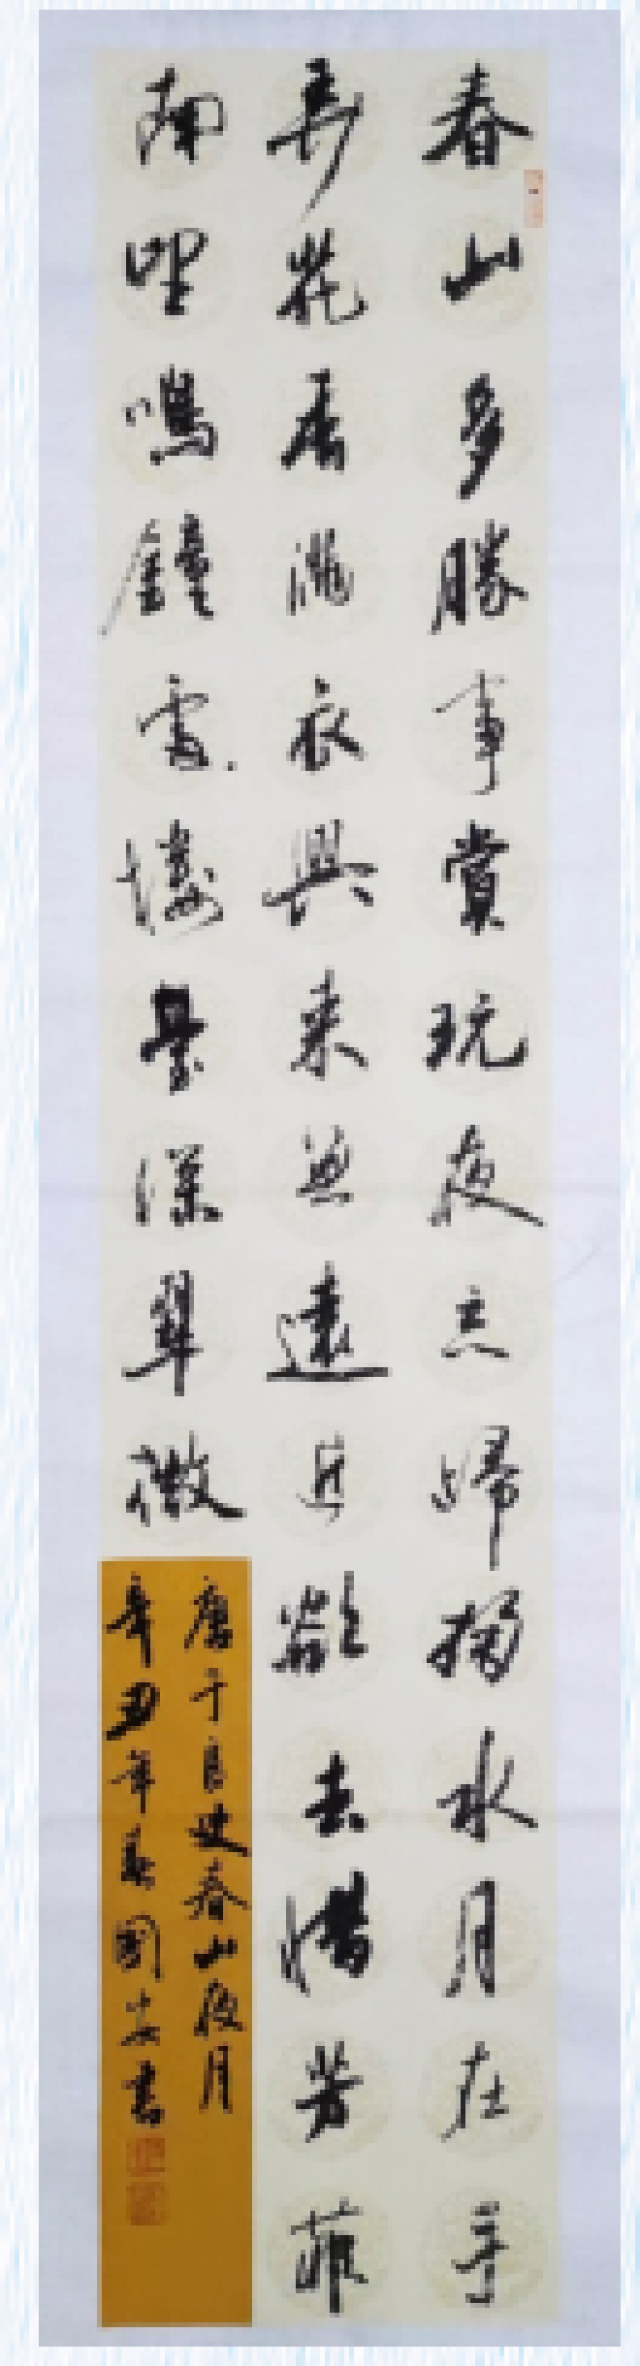 春山多勝事賞玩夜忘歸掬水月在手
弄花香滿衣興來無遠近欲去惜芳菲
南望鳴鐘處樓臺深翠微
唐于良史春山夜月
辛丑年國安書